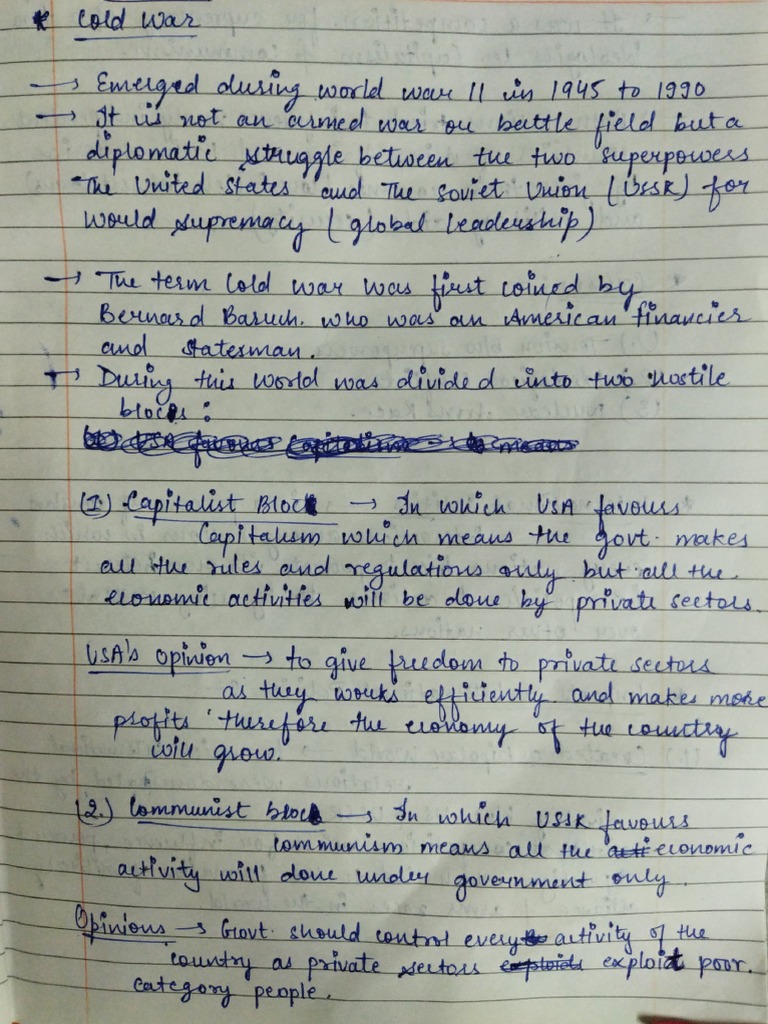 * Cold War
→ Emerged during world war II in 1945 to 1990
→ It is not an armed war or battle field but a
diplomatic struggle between the two superpowers
The United States and The Soviet Union (USSR) for
World supremacy (global leadership)
→ The term Cold war was first coined by
Bernard Baruch. who was an American financier
and statesman.
→ During this world was divided into two hostile
blocks :
(1) USA favours Capitalism → means
(1.) Capitalist Block → In which USA favours
Capitalism which means the govt. makes
all the rules and regulations only but all the
economic activities will be done by private sectors.
USA's opinion → to give freedom to private sectors
as they works efficiently and makes more
profits therefore the economy of the country
will grow.
(2.) Communist block → In which USSR favours
communism means all the acti economic
activity will done under government only.
Opinions → Govt. should control every activity of the
country as private sectors exploids exploit poor.
category people.